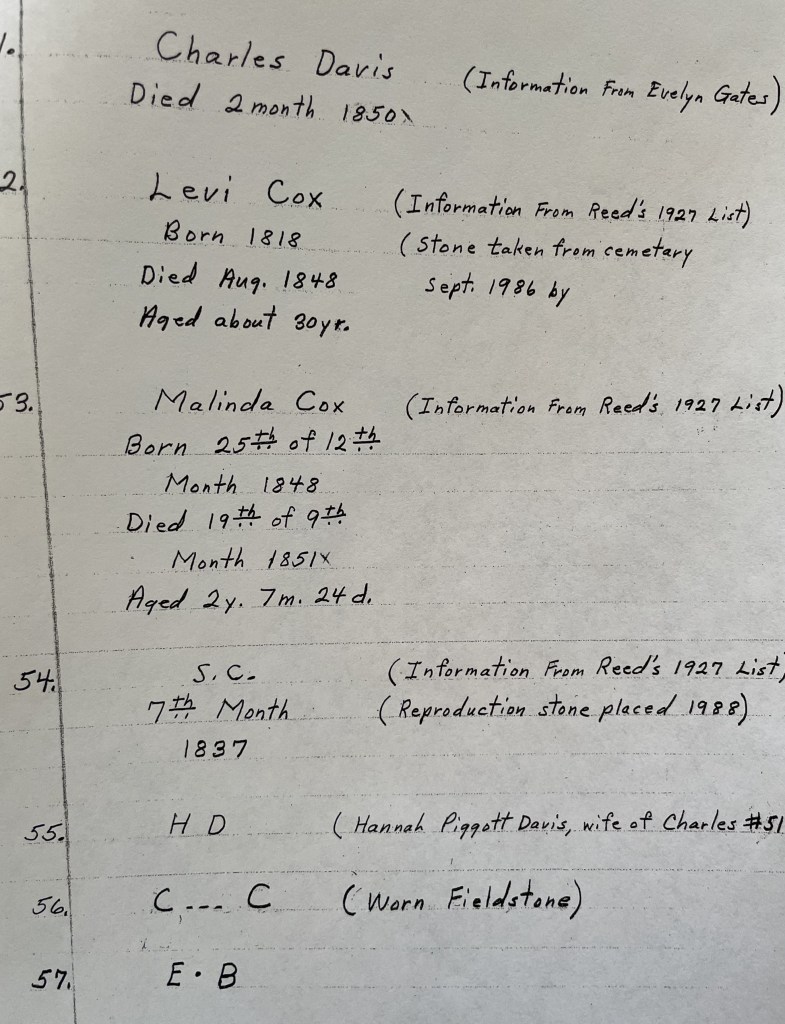 1. Charles Davis (Information From Evelyn Gates)
Died 2 month 1850
2. Levi Cox (Information From Reed's 1927 List)
Born 1818 (Stone taken from cemetary
Died Aug. 1848 Sept. 1986 by
Aged about 30yr.
53. Malinda Cox (Information From Reed's 1927 List)
Born 25th of 12th
Month 1848
Died 19th of 9th
Month 1851x
Aged 2y. 7m. 24d.
54. S. C. (Information From Reed's 1927 List)
7th Month (Reproduction stone placed 1988)
1837
55. H D (Hannah Piggott Davis, wife of Charles #51
56. C .--- C (Worn Fieldstone)
57. E · B